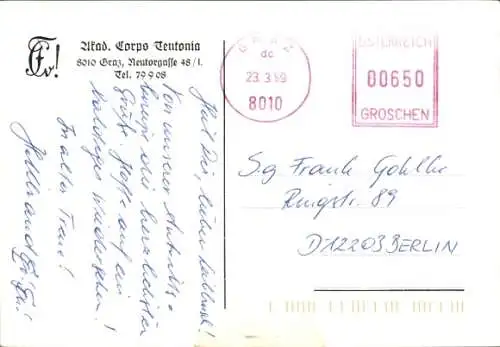 Akad. Corps Teutonia
8010 Graz, Neutorgasse 48/I.
Tel. 79 9 08
Heil Dir, lieber Leibbursch!
Von unserer Antritts-
kneipe die herzlichsten
Grüße. Hoffe auf ein
baldiges Wiedersehen!
In alter Treue!
GRAZ
dc
23. 3. 99
8010
ÖSTERREICH
00650
GROSCHEN
S.g. Frank Gohlke
Ringstr. 89
D12203 BERLIN